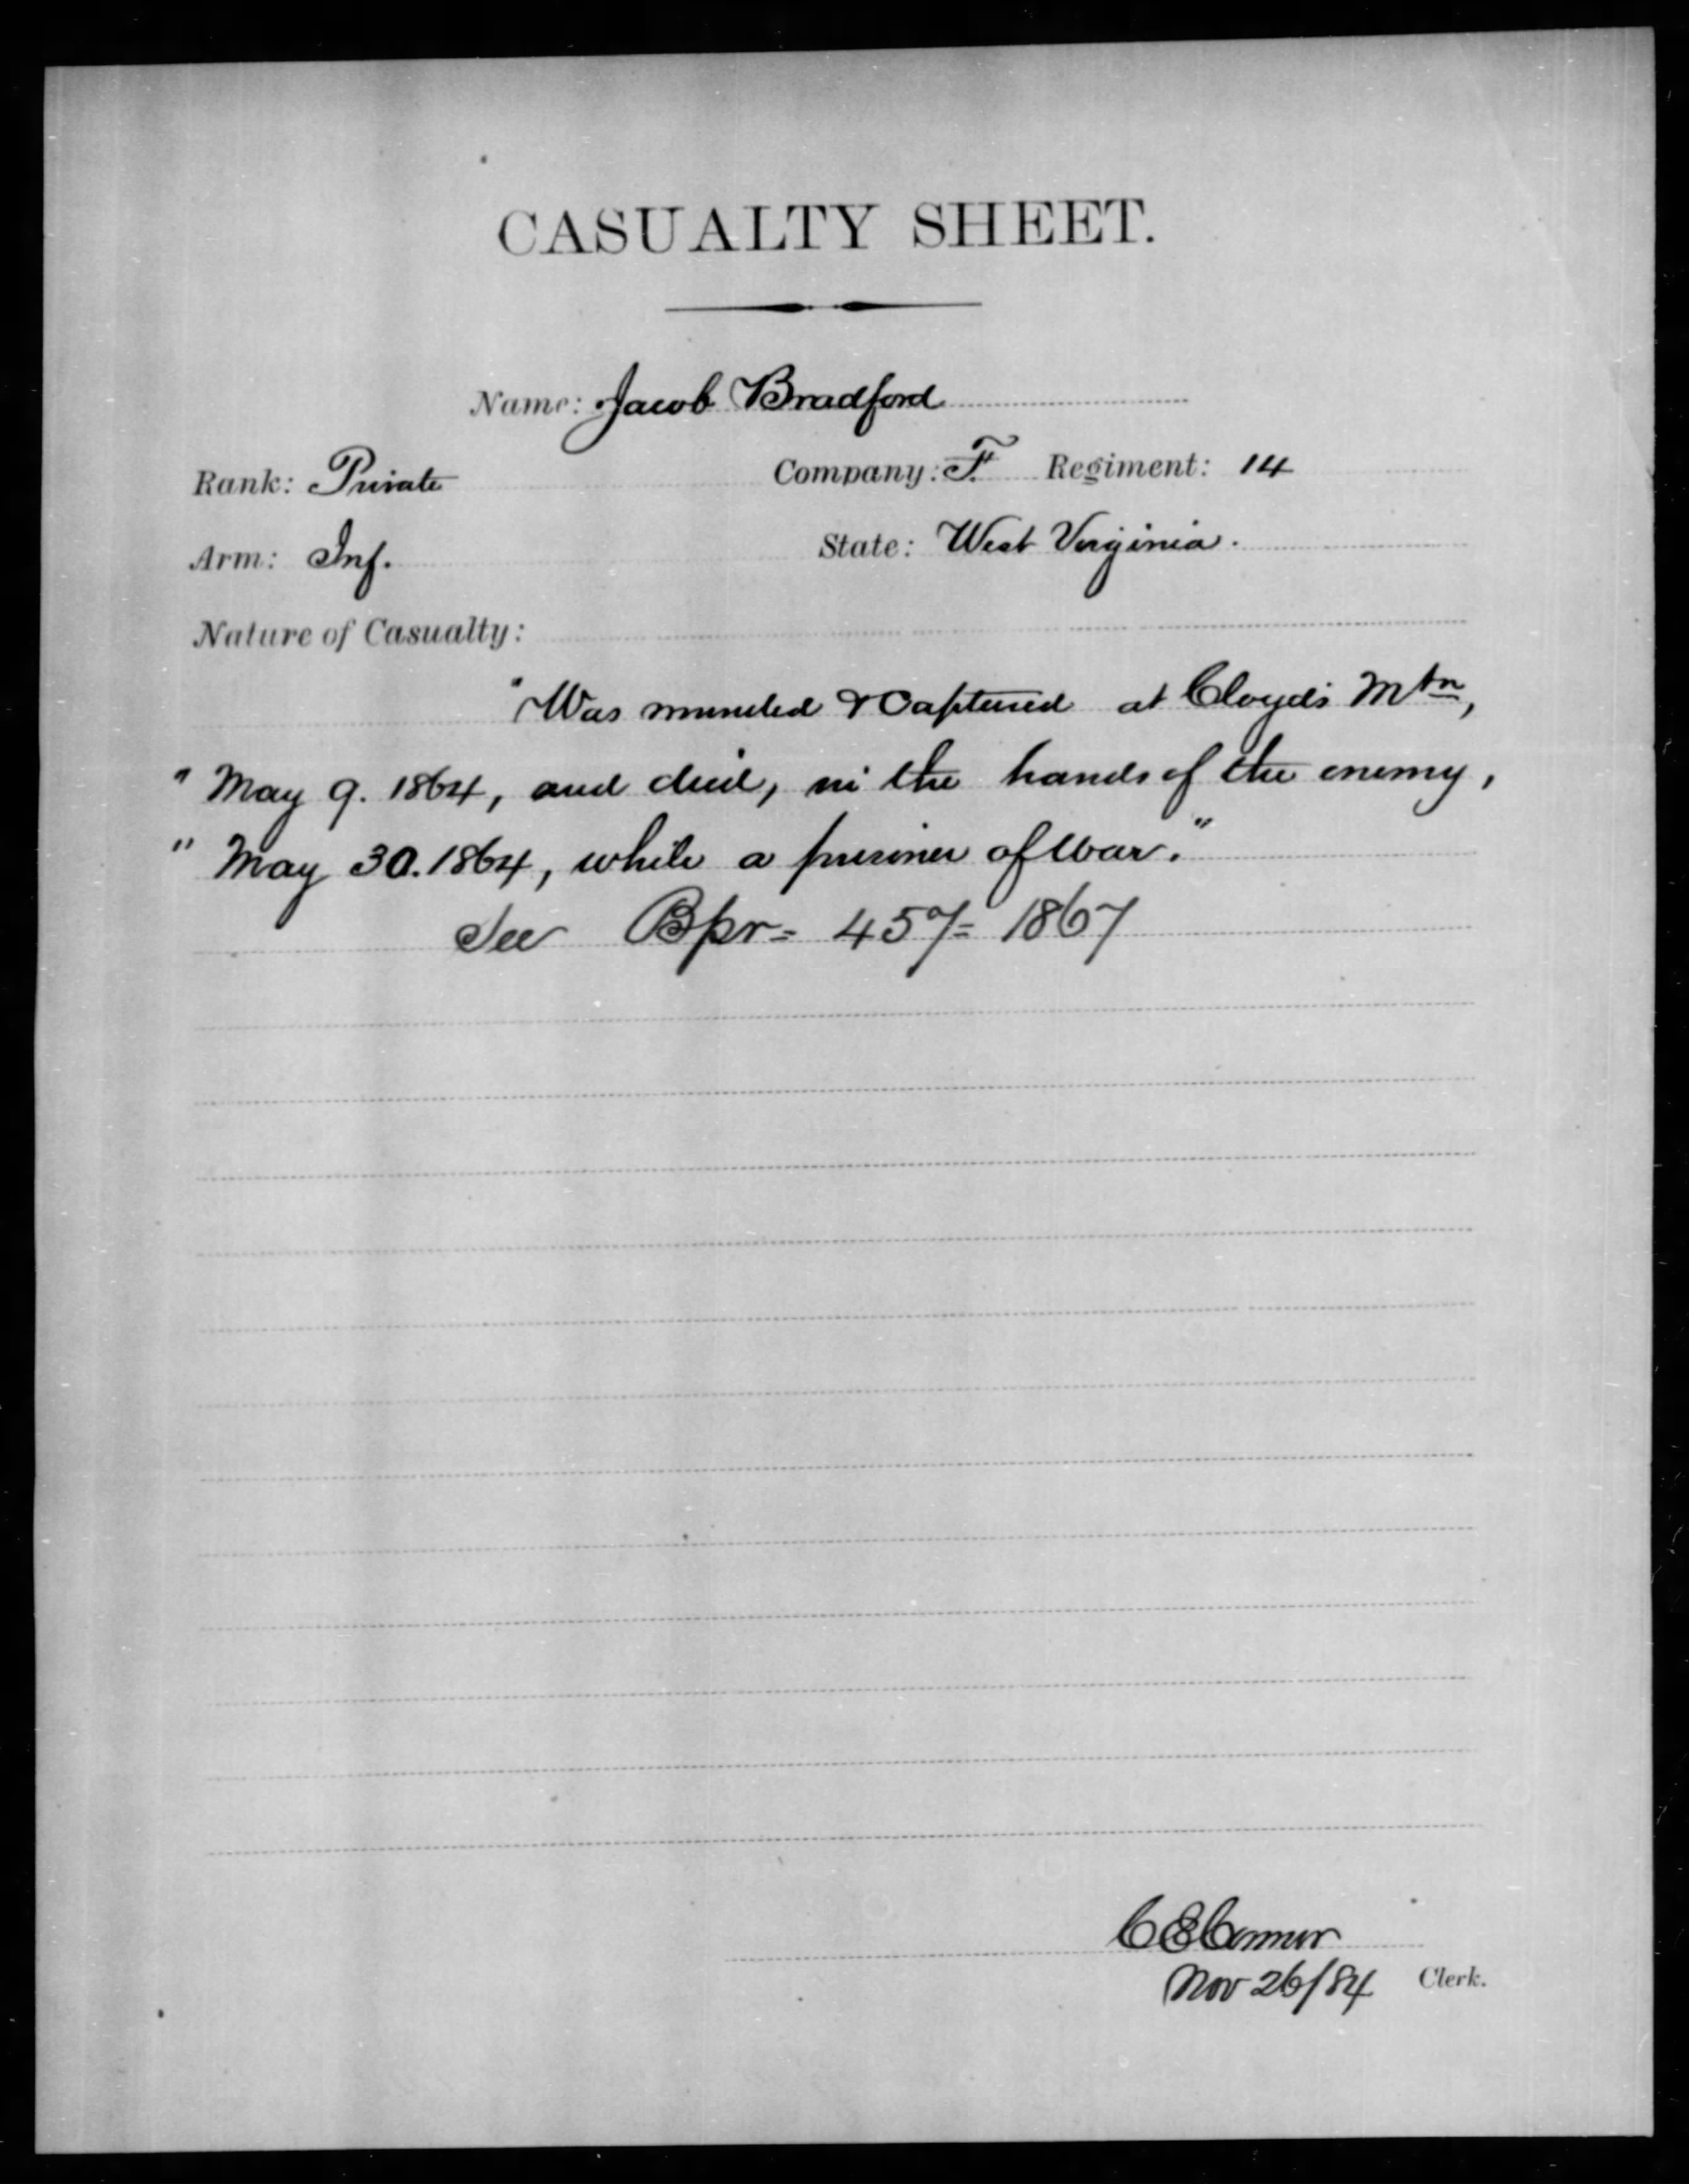 CASUALTY SHEET.
Name: Jacob Bradford
Rank: Private Company: F. Regiment: 14
Arm: Inf. State: West Virginia.
Nature of Casualty:
"Was wounded & Captured at Cloyd's Mtn,
" May 9. 1864, and died, in the hands of the enemy,
" May 30. 1864, while a prisoner of war."
See Bpr= 457= 1867
C E Connor
Nov 26/84 Clerk.